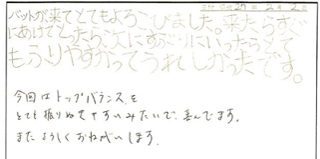 バットが来てとてもよろこびました。来たらすぐ
にあけてとったら、次にすぶりにいったらとて
もふりやすかってうれしかったです。
今回はトップバランスを
とても振りぬきやすいみたいで、喜んでます。
またよろしくおねがいします。